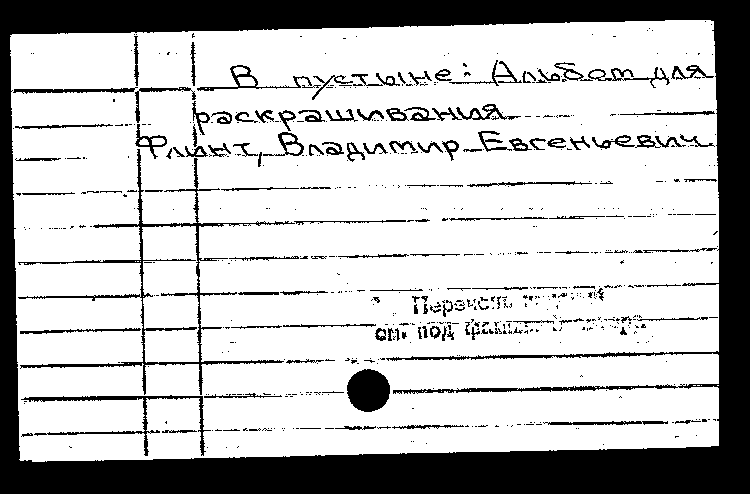 В пустыне: Альбом для
раскрашивания
Флинт, Владимир Евгеньевич.
Перечень
см. под